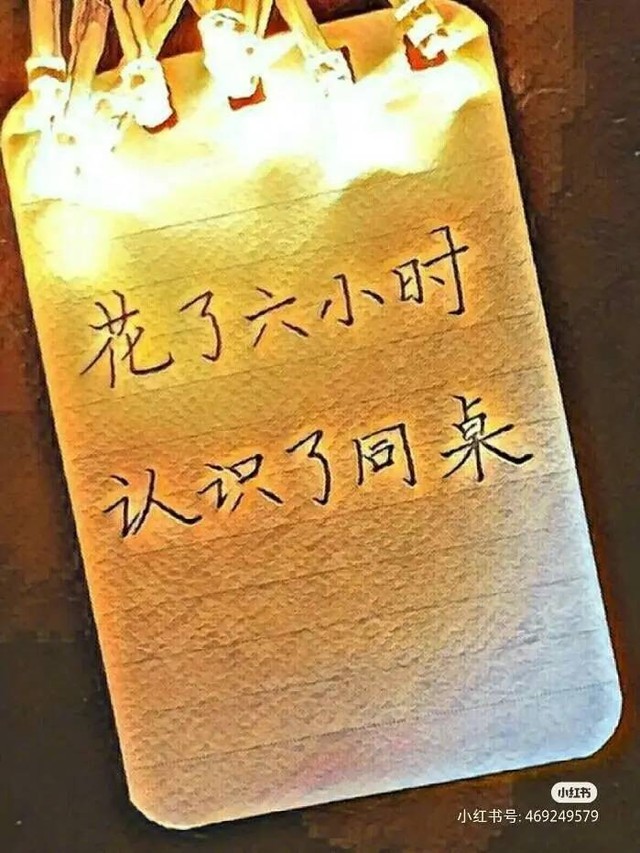 花了六小时
认识了同桌
小红书
小红书号: 469249579